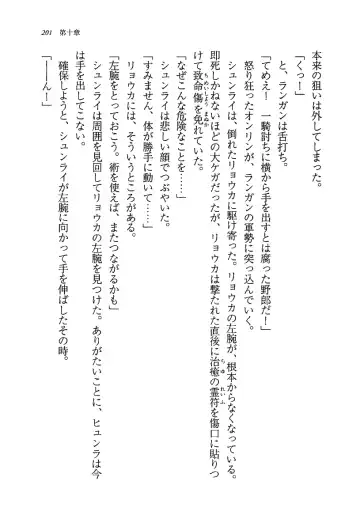 201　第十章
本来の狙いは外してしまった。
「くっ！」
と、ランガンは舌打ち。
「てめえー　一騎討ちに横から手を出すとは腐った野郎だー！」
怒り狂ったオンリンが、ランガンの軍勢に突っ込んでいく。
シュンライは、倒れたリョウカに駆け寄った。リョウカの左腕が、根本からなくなっている。
即死しかねないほどの大ケガだったが、リョウカは撃たれた直後に治癒の霊符を傷口に貼りつ
けて致命傷を免れていた。
「なぜこんな危険なことを……」
シュンライは悲しい顔でつぶやいた。
「すみません、体が勝手に動いて……」
リョウカには、そういうところがある。
「左腕をとっておこう。術を使えば、またつながるかも」
シュンライは周囲を見回してリョウカの左腕を見つけた。ありがたいことに、ヒュンラは今
は手を出してこない。
確保しようと、シュンライが左腕に向かって手を伸ばしたその時。
「――ん！」